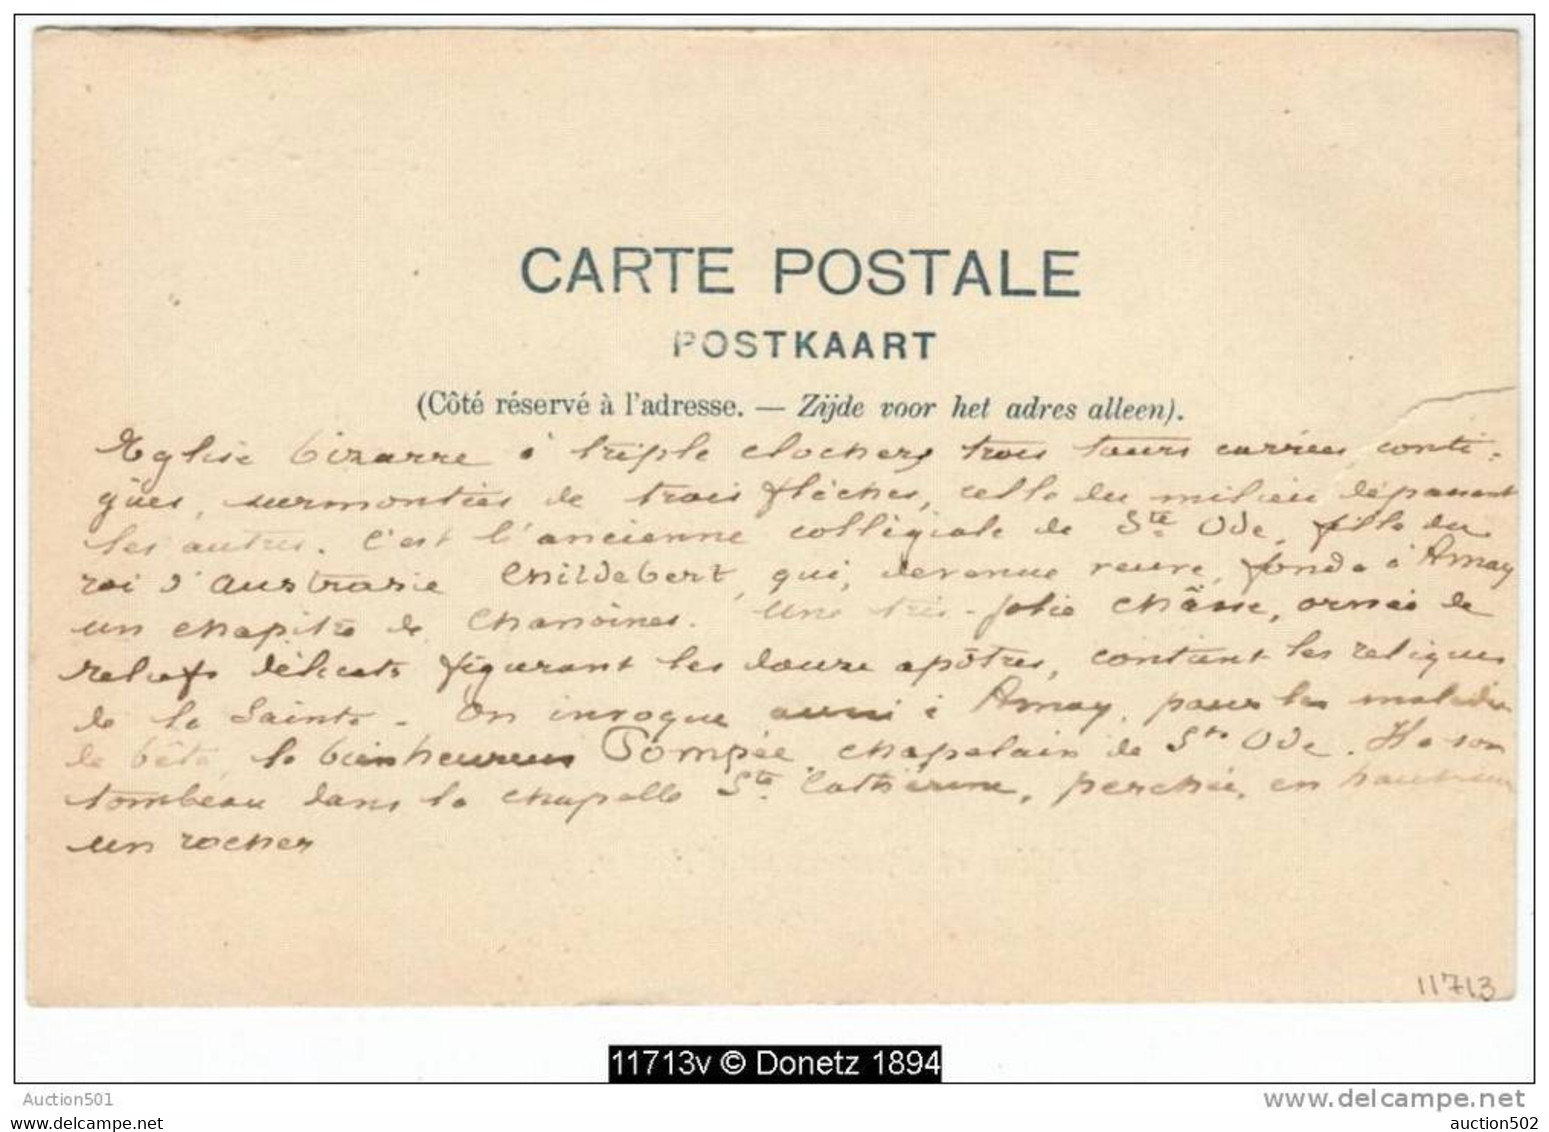 CARTE POSTALE
POSTKAART
(Côté réservé à l'adresse. — Zijde voor het adres alleen).
Eglise bizarre à triple clochers trois tours carrées conti-
gües, surmontées de trois flèches, celle du milieu dépassant
les autres. C'est l'ancienne collégiale de Ste Ode, fille du
roi d'Austrasie Childebert, qui, devenue veuve, fonda à Amay
un chapitre de Chanoines. Une très-jolie châsse, ornée de
reliefs délicats figurant les douze apôtres, contient les reliques
de la Sainte. On invoque aussi à Amay, pour les maladies
de bête, le bienheureux Pompée, chapelain de Ste Ode. Il a son
tombeau dans la chapelle Ste Catherine, perchée, en haut
un rocher
11713
11713v © Donetz 1894
Auction501
www.delcampe.net
auction501
auction502